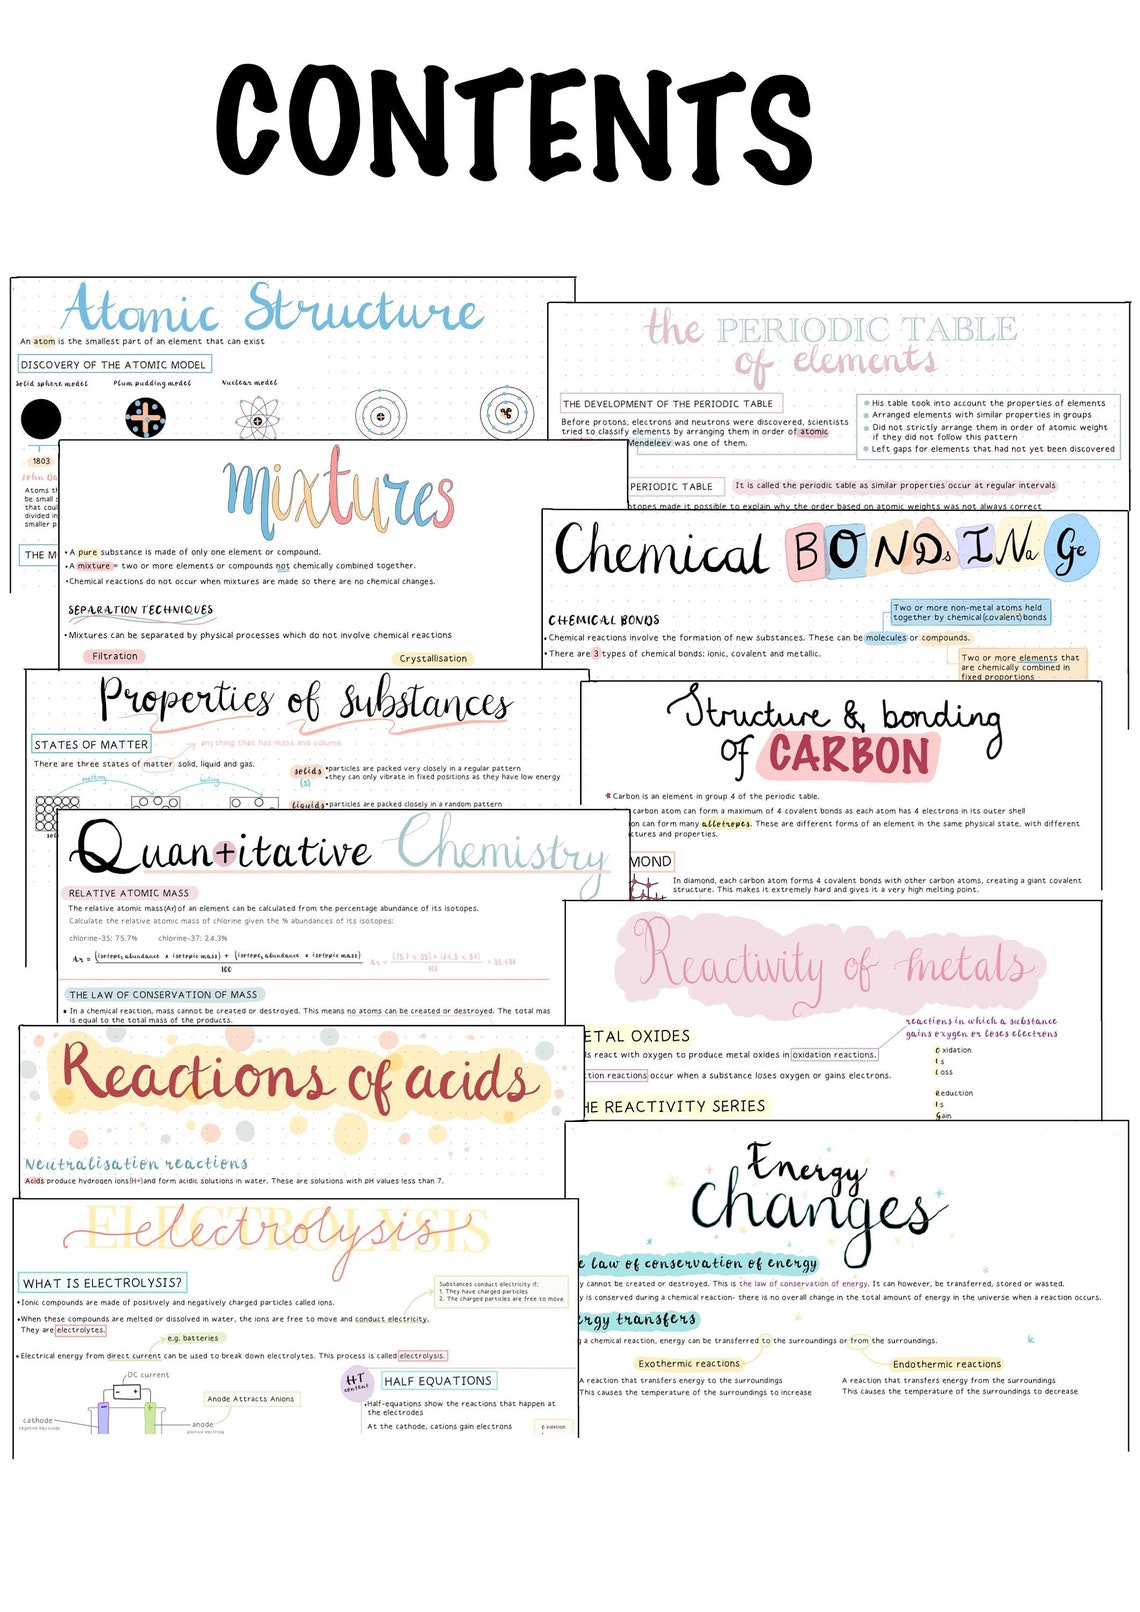 CONTENTS
Atomic Structure
An atom is the smallest part of an element that can exist
DISCOVERY OF THE ATOMIC MODEL
Solid sphere model Plum pudding model Nuclear model
1803
John Da
Atoms th
be small s
that coul
divided in
smaller p
THE M
the PERIODIC TABLE
of elements
THE DEVELOPMENT OF THE PERIODIC TABLE
Before protons, electrons and neutrons were discovered, scientists
tried to classify elements by arranging them in order of atomic
Mendeleev was one of them.
His table took into account the properties of elements
Arranged elements with similar properties in groups
Did not strictly arrange them in order of atomic weight
if they did not follow this pattern
Left gaps for elements that had not yet been discovered
PERIODIC TABLE
It is called the periodic table as similar properties occur at regular intervals
otopes made it possible to explain why the order based on atomic weights was not always correct
mixtures
• A pure substance is made of only one element or compound.
• A mixture = two or more elements or compounds not chemically combined together.
• Chemical reactions do not occur when mixtures are made so there are no chemical changes.
SEPARATION TECHNIQUES
• Mixtures can be separated by physical processes which do not involve chemical reactions
Filtration Crystallisation
Chemical BONDsINaGe
Two or more non-metal atoms held
together by chemical(covalent)bonds
CHEMICAL BONDS
• Chemical reactions involve the formation of new substances. These can be molecules or compounds.
• There are 3 types of chemical bonds: ionic, covalent and metallic.
Two or more elements that
are chemically combined in
fixed proportions
Properties of substances
STATES OF MATTER
anything that has mass and volume
There are three states of matter solid, liquid and gas.
melting boiling
sol
solids
(s)
• particles are packed very closely in a regular pattern
• they can only vibrate in fixed positions as they have low energy
liquids • particles are packed closely in a random pattern
Structure & bonding
of CARBON
* Carbon is an element in group 4 of the periodic table.
carbon atom can form a maximum of 4 covalent bonds as each atom has 4 electrons in its outer shell
on can form many allotropes. These are different forms of an element in the same physical state, with different
ctures and properties.
MOND
In diamond, each carbon atom forms 4 covalent bonds with other carbon atoms, creating a giant covalent
structure. This makes it extremely hard and gives it a very high melting point.
Quan+itative Chemistry
RELATIVE ATOMIC MASS
The relative atomic mass(Ar)of an element can be calculated from the percentage abundance of its isotopes.
Calculate the relative atomic mass of chlorine given the % abundances of its isotopes:
chlorine-35: 75.7% chlorine-37: 24.3%
Ar = (isotope, abundance x isotopic mass) + (isotope, abundance x isotopic mass) Ar = (75.7 x 35) + (24.3 x 37) = 35.486
100 100
THE LAW OF CONSERVATION OF MASS
• In a chemical reaction, mass cannot be created or destroyed. This means no atoms can be created or destroyed. The total mas
is equal to the total mass of the products.
Reactivity of metals
reactions in which a substance
gains oxygen or loses electrons
ETAL OXIDES
ls react with oxygen to produce metal oxides in oxidation reactions.
ction reactions occur when a substance loses oxygen or gains electrons.
HE REACTIVITY SERIES
Oxidation
Is
Loss
Reduction
Is
Gain
Reactions of acids
Neutralisation reactions
Acids produce hydrogen ions(H+)and form acidic solutions in water. These are solutions with pH values less than 7.
Energy
changes
e law of conservation of energy
y cannot be created or destroyed. This is the law of conservation of energy. It can however, be transferred, stored or wasted.
y is conserved during a chemical reaction- there is no overall change in the total amount of energy in the universe when a reaction occurs.
rgy transfers
g a chemical reaction, energy can be transferred to the surroundings or from the surroundings.
Exothermic reactions Endothermic reactions
A reaction that transfers energy to the surroundings
This causes the temperature of the surroundings to increase
A reaction that transfers energy from the surroundings
This causes the temperature of the surroundings to decrease
ELECTROLYSIS
electrolysis
WHAT IS ELECTROLYSIS?
Substances conduct electricity if:
1. They have charged particles
2. The charged particles are free to move
• Ionic compounds are made of positively and negatively charged particles called ions.
• When these compounds are melted or dissolved in water, the ions are free to move and conduct electricity.
They are electrolytes.
e.g. batteries
• Electrical energy from direct current can be used to break down electrolytes. This process is called electrolysis.
DC current
- +
Anode Attracts Anions
cathode
negative electrode
anode
positive electrode
HT
content
HALF EQUATIONS
• Half-equations show the reactions that happen at
the electrodes
At the cathode, cations gain electrons
Oxidation